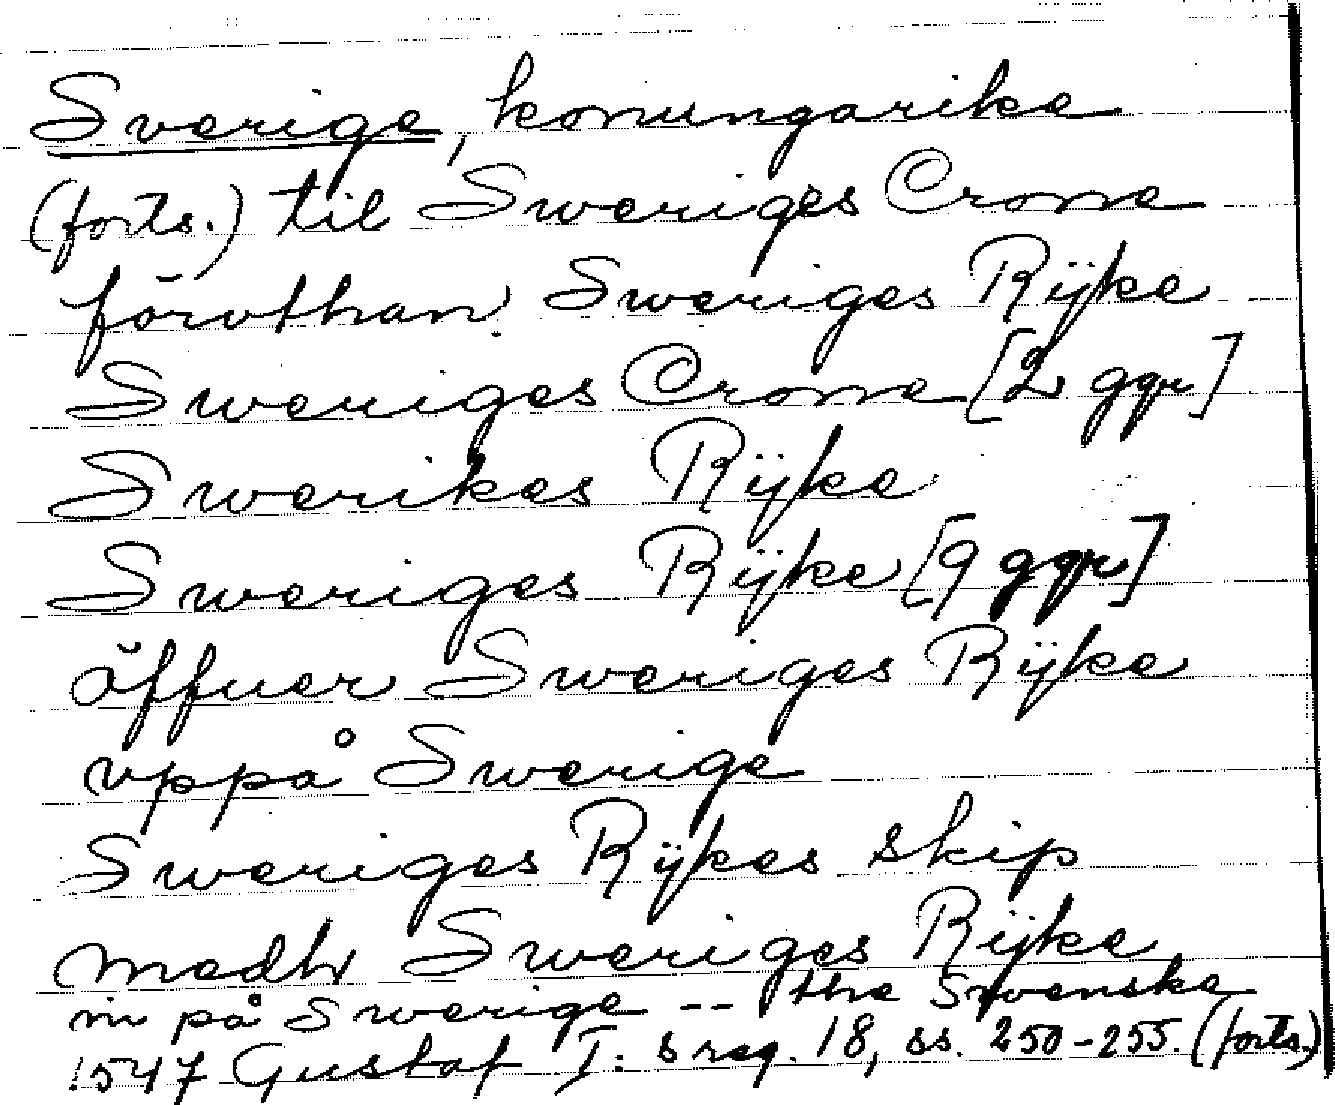 Sverige, konungarike
(forts.) til Sweriges Crone
förvthan Sweriges Rÿke
Sweriges Crone [2 ggr]
Swerikes Rÿke
Sweriges Rÿke [9 ggr]
öffuer Sweriges Rÿke
vppå Swerige
Sweriges Rÿkes skip
medh Sweriges Rÿke
in på Swerige -- the Swenske
1547 Gustaf I:s reg. 18, ss. 250-255. (forts.)